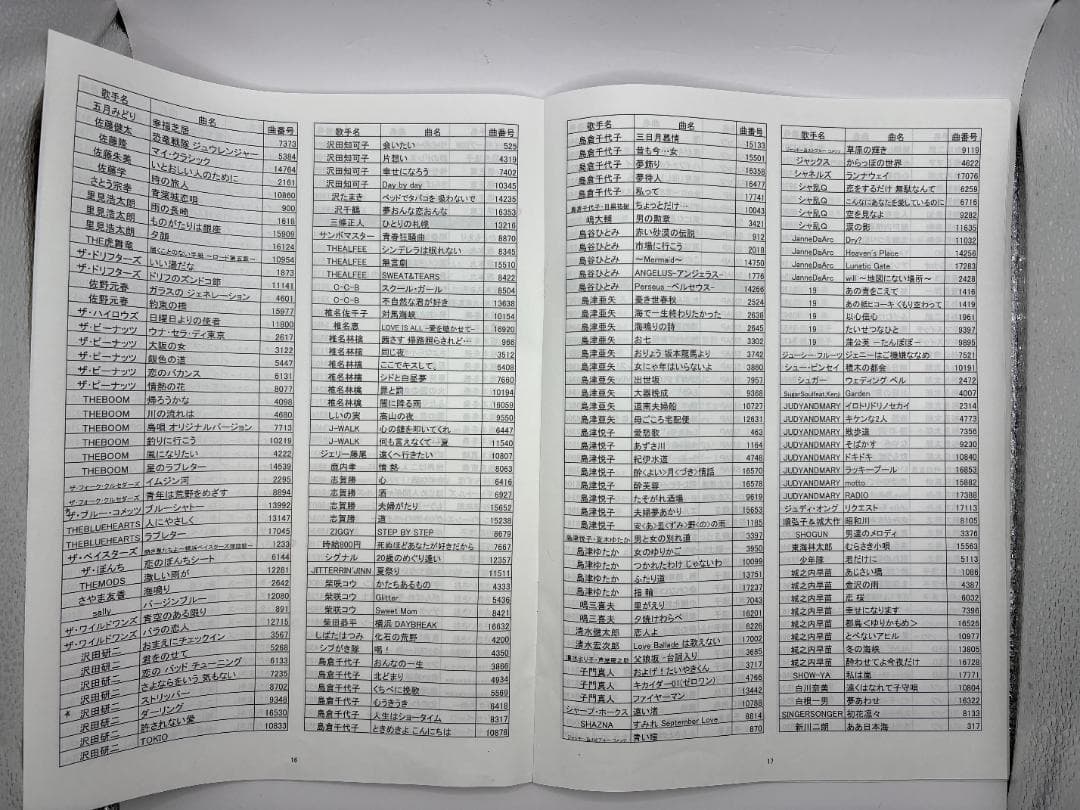 歌手名 曲名 曲番号
五月みどり 幸福芝居 7373
佐藤健太 恐竜戦隊 ジュウレンジャー 5384
佐藤隆 マイ・クラシック 14764
佐藤朱美 いとおしい人のために 2161
佐藤学 時の旅人 10860
さとう宗幸 青葉城恋唄 900
里見浩太朗 雨の長崎 1618
里見浩太朗 ものがたりは銀座 15909
里見浩太朗 夕顔 16124
THE虎舞竜 10954
ザ・ドリフターズ いい湯だな 1873
ザ・ドリフターズ ドリフのズンドコ節 11141
佐野元春 ガラスの ジェネレーション 4601
佐野元春 約束の橋 15977
ザ・ハイロウズ 日曜日よりの使者 11800
ザ・ピーナッツ ウナ・セラ・ディ東京 2617
ザ・ピーナッツ 大阪の女 3122
ザ・ピーナッツ 銀色の道 5447
ザ・ピーナッツ 恋のバカンス 6131
ザ・ピーナッツ 情熱の花 8077
THEBOOM 帰ろうかな 4098
THEBOOM 川の流れは 4680
THEBOOM 島唄 オリジナルバージョン 7713
THEBOOM 釣りに行こう 10219
THEBOOM 風になりたい 4222
THEBOOM 星のラブレター 14539
ザ・フォーク・クルセダーズ イムジン河 2295
ザ・フォーク・クルセダーズ 青年は荒野をめざす 8894
ザ・ブルー・コメッツ ブルーシャトー 13992
THEBLUEHEARTS 人にやさしく 13147
THEBLUEHEARTS ラブレター 17045
ザ・ベイスターズ 1233
ザ・ぼんち 恋のぼんちシート 6144
THEMODS 激しい雨が 12281
さやま友香 海鳴り 2642
sally バージンブルー 12080
ザ・ワイルドワンズ 青空のある限り 891
ザ・ワイルドワンズ バラの恋人 12715
沢田研二 おまえにチェックイン 3567
沢田研二 君をのせて 5268
沢田研二 恋の バッド チューニング 6133
沢田研二 さよならをいう 気もない 7235
沢田研二 ストリッパー 8702
* 沢田研二 ダーリング 9348
沢田研二 許されない愛 16530
沢田研二 TOKIO 10833
歌手名 曲名 曲番号
沢田知可子 会いたい 525
沢田知可子 片想い 4319
沢田知可子 幸せになろう 7402
沢田知可子 Day by day 10345
沢たまき ベッドでタバコを 吸わないで 14235
沢千鶴 夢おんな恋おんな 16353
三條正人 ひとりの札幌 13216
サンボマスター 青春狂騒曲 8870
THEALFEE シンデレラは眠れない 8345
THEALFEE 無言劇 15510
THEALFEE SWEAT&TEARS 8422
C-C-B スクール・ガール 8504
C-C-B 不自然な君が好き 13638
椎名佐千子 対馬海峡 10154
椎名恵 LOVE IS ALL -愛を聴かせて- 16920
椎名林檎 茜さす 帰路照らされど… 966
椎名林檎 同じ夜 3512
椎名林檎 ここでキスして。 5408
椎名林檎 シドと白昼夢 7660
椎名林檎 罪と罰 10194
椎名林檎 闇に降る雨 16059
しいの実 高山の夜 9550
J-WALK 心の鐘を叩いてくれ 6447
J-WALK 何も言えなくて…夏 11540
ジェリー藤尾 遠くへ行きたい 10807
鹿内孝 情熱 8063
志賀勝 心 6416
志賀勝 酒 6927
志賀勝 夫婦がたり 15652
志賀勝 道 15238
ZIGGY STEP BY STEP 8679
時給800円 死ぬほどあなたが好きだから 7667
シグナル 20歳のめぐり逢い 12357
JITTERIN'JINN 夏祭り 11511
柴咲コウ かたちあるもの 4333
柴咲コウ Glitter 5436
柴咲コウ Sweet Mom 8421
柴田恭平 横浜 DAYBREAK 16632
しばたはつみ 化石の荒野 4200
シブがき隊 喝! 4350
島倉千代子 おんなの一生 3866
島倉千代子 北どまり 4934
島倉千代子 くちべに挽歌 5569
島倉千代子 心うきうき 6418
島倉千代子 人生はショータイム 8317
島倉千代子 ときめきよ こんにちは 10878
16
歌手名 曲名 曲番号
島倉千代子 三日月慕情 15133
島倉千代子 昔も今…女 15501
島倉千代子 夢飾り 16358
島倉千代子 夢待人 16477
島倉千代子 私って 17741
ちょっとだけ… 10043
嶋大輔 男の勲章 3421
島谷ひとみ 赤い砂漠の伝説 912
島谷ひとみ 市場に行こう 2018
島谷ひとみ ～Mermaid～ 14750
島谷ひとみ ANGELUS-アンジェラス- 1776
島谷ひとみ Perseus -ペルセウス- 14266
島津亜矢 愛き世春秋 2524
島津亜矢 海で一生終わりたかった 2638
島津亜矢 海鳴りの詩 2645
島津亜矢 お七 3302
島津亜矢 おりょう 坂本龍馬より 3742
島津亜矢 女にゃ年はいらないよ 3860
島津亜矢 出世坂 7957
島津亜矢 大器晩成 9368
島津亜矢 道南夫婦船 10727
島津亜矢 母ごころ宅配便 12631
島津悦子 愛愁歌 463
島津悦子 あずさ川 1164
島津悦子 紀伊水道 4748
島津悦子 酔(よい)月(づき)情話 16570
島津悦子 酔芙蓉 16578
島津悦子 たそがれ酒場 9619
島津悦子 夫婦夢あかり 15653
島津悦子 安(あ)曇(ずみ)野(の)の雨 1185
男と女の別れ道 3397
島津ゆたか 女のゆりかご 3950
島津ゆたか つかれたわけ じゃないわ 10099
島津ゆたか ふたり道 13751
島津ゆたか 指輪 17237
鳴三喜夫 里がえり 7043
鳴三喜夫 夕焼けわらべ 16201
清水健太郎 恋人よ 6226
清水宏次郎 Love Ballade は歌えない 17002
父娘坂-台詞入り 3685
子門真人 およげ!たいやきくん 3717
子門真人 キカイダー01(ゼロワン) 4766
子門真人 ファイヤーマン 13442
シャープ・ホークス 遠い渚 10788
SHAZNA すみれ September Love 8814
青い瞳 870
歌手名 曲名 曲番号
草原の輝き 9119
ジャックス からっぽの世界 4622
シャネルズ ランナウェイ 17076
シャ乱Q 恋をするだけ 無駄なんて 6259
シャ乱Q こんなにあなたを愛しているのに 6716
シャ乱Q 空を見なよ 9282
シャ乱Q 涙の影 11635
JanneDaArc Dry? 11032
JanneDaArc Heaven's Place 14256
JanneDaArc Lunatic Gate 17283
JanneDaArc will ～地図にない場所～ 2428
19 あの青をこえて 1416
19 あの紙ヒコーキくもり空わって 1419
19 以心伝心 1961
19 たいせつなひと 9397
19 蒲公英 -たんぽぽ- 9895
ジューシー・フルーツ ジェニーはご機嫌ななめ 7521
シュー・ピンセイ 積木の都会 10191
シュガー ウェディング ベル 2472
SugarSoulfeat.Kenji Garden 4007
JUDYANDMARY イロトリドリノセカイ 2314
JUDYANDMARY キケンな2人 4773
JUDYANDMARY 散歩道 7356
JUDYANDMARY そばかす 9230
JUDYANDMARY ドキドキ 10840
JUDYANDMARY ラッキープール 16853
JUDYANDMARY motto 15882
JUDYANDMARY RADIO 17388
ジュディ・オング リクエスト 17113
順弘子&城大作 昭和川 8105
SHOGUN 男達のメロディ 3376
東海林太郎 むらさき小唄 15563
少年隊 君だけに 5113
城之内早苗 あじさい橋 1086
城之内早苗 金沢の雨 4387
城之内早苗 恋桜 6032
城之内早苗 幸せになります 7396
城之内早苗 都鳥＜ゆりかもめ＞ 16526
城之内早苗 とべないアヒル 10977
城之内早苗 冬の海峡 13805
城之内早苗 酔わせてよ今夜だけ 16728
SHOW-YA 私は嵐 17771
白川奈美 遠くはなれて子守唄 10804
白根一男 夢あわせ 16322
SINGERSONGER 初花凛々 8133
新川二朗 ああ日本海 317
17